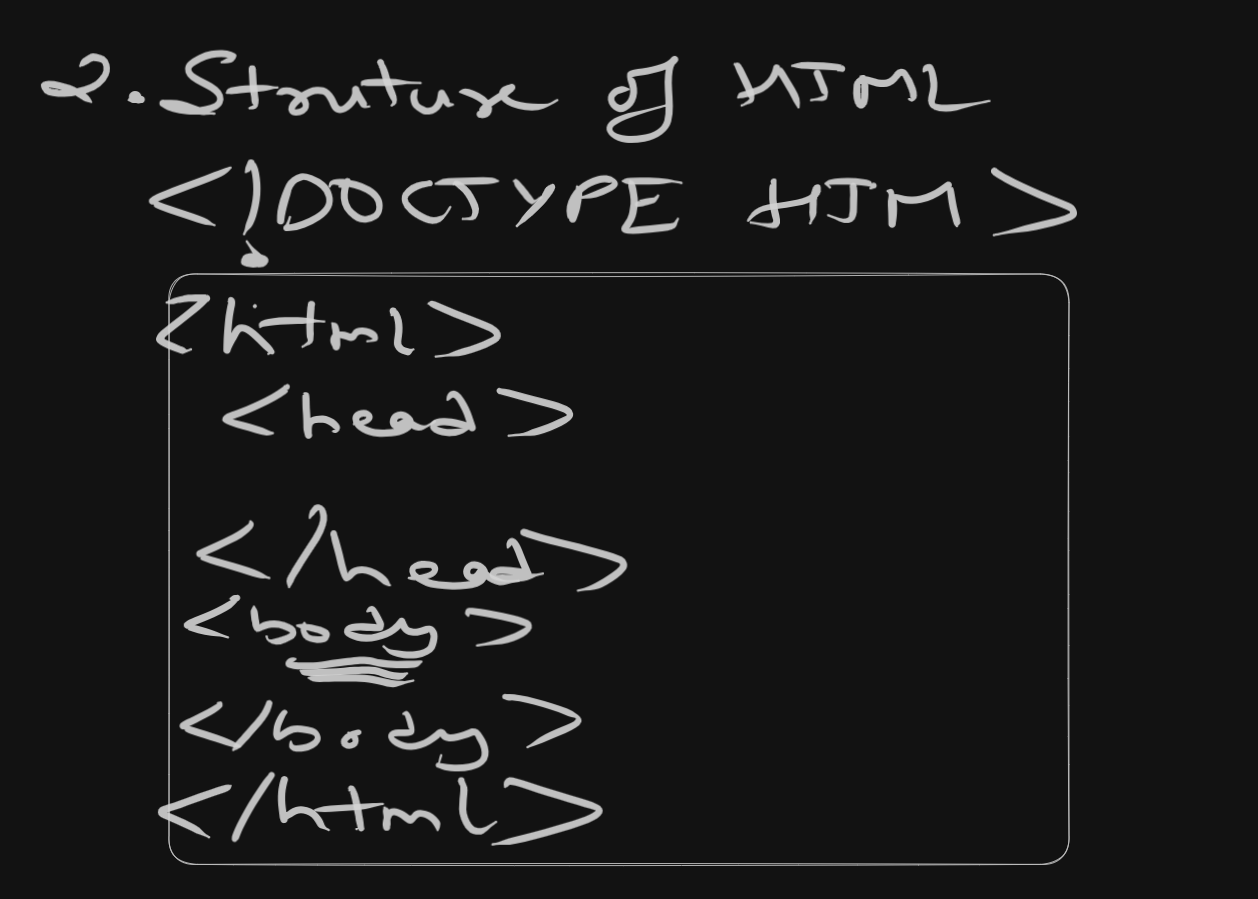 2. Struture of HTML
<!DOCTYPE HTM>
<html>
<head>
</head>
<body>
</body>
</html>